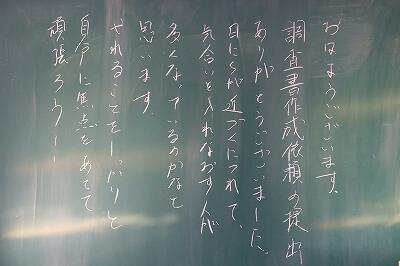 おはようございます。
調査書作成依頼の提出
ありがとうございました。
日にちが近づくにつれて、
気合いを入れなおす人が
多くなっているのかなと
思います。
やれることをしっかりと
自分に焦点をあてて
頑張ろう!!